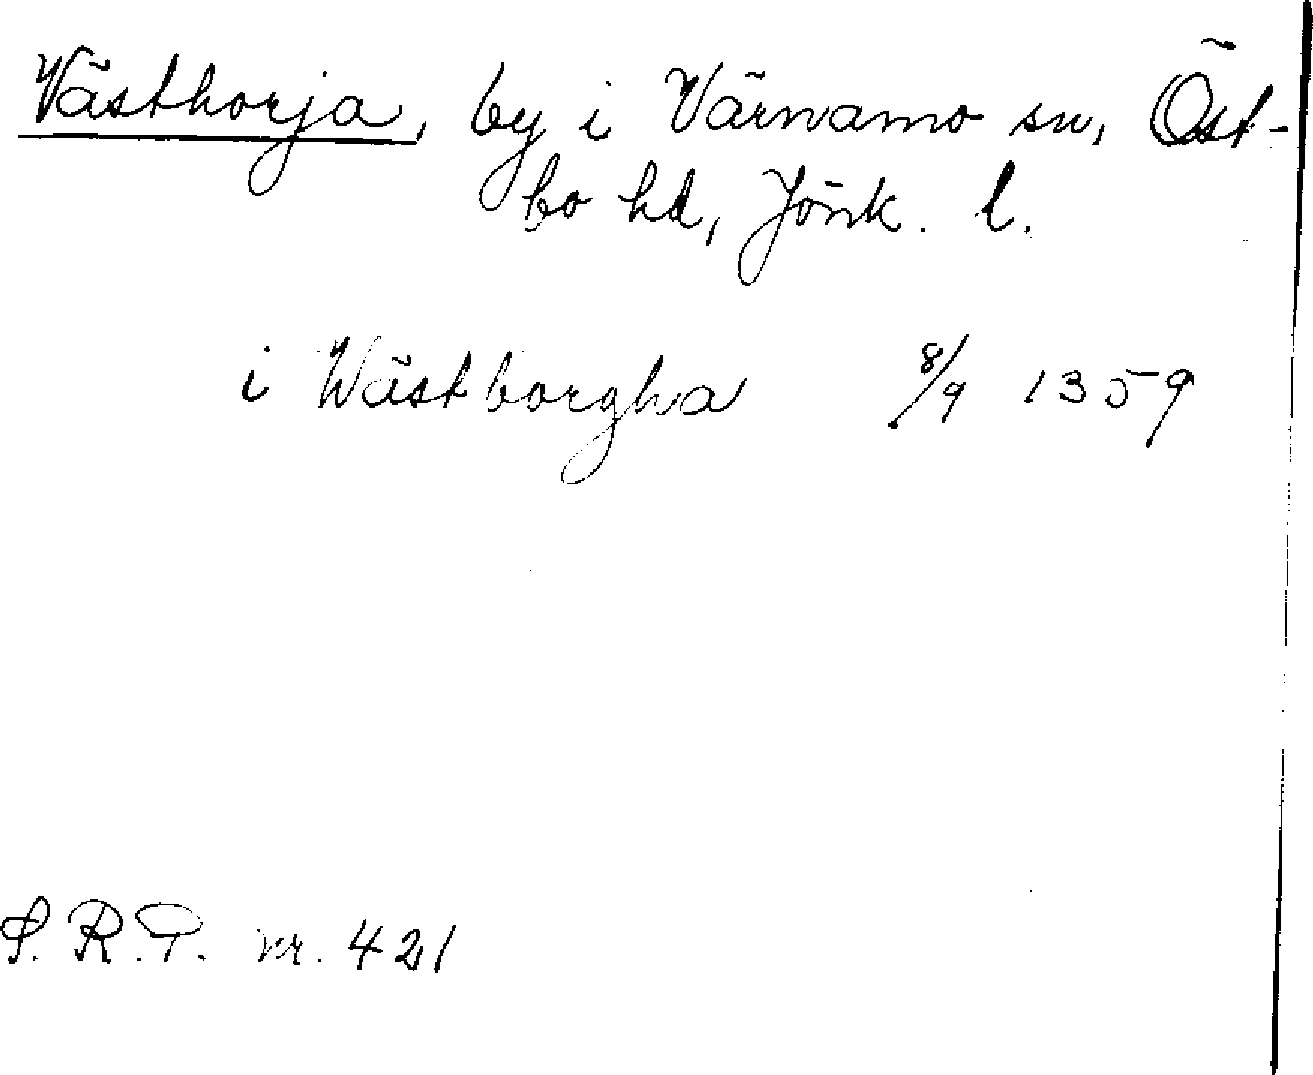 Västhorja, by i Värnamo sn, Öst-
bo hd, Jönk. l.
i Wästborgha 8/9 1359
S.R.P. nr. 421